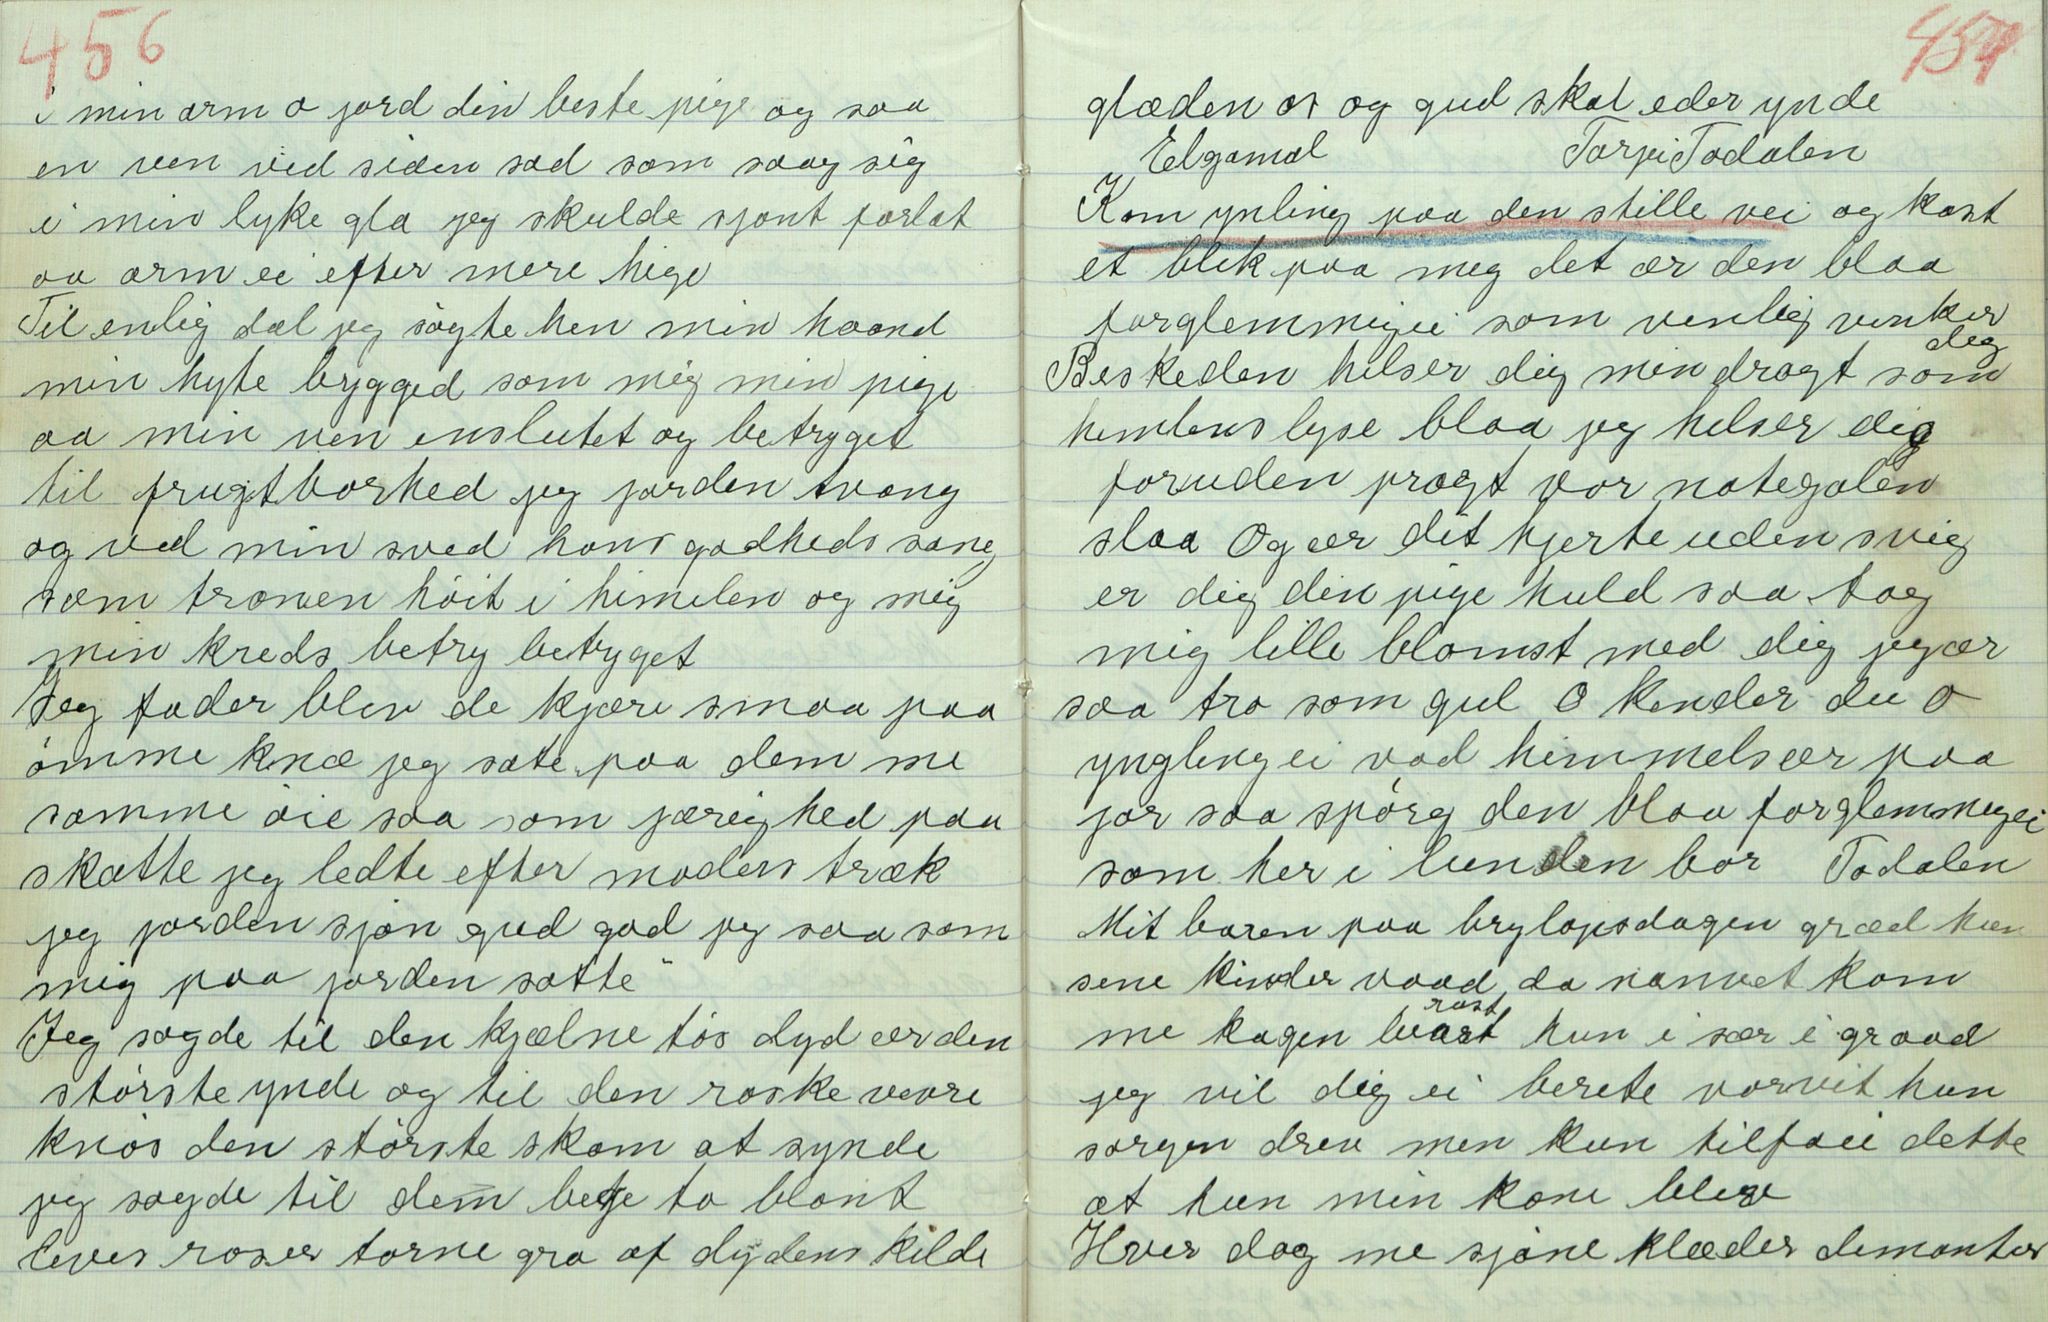 456
i min arm o jord din beste pige og saa
en ven ved siden sad som saag sig
i min lyke gla jeg skulde sjønt forlat
aa arm ei efter mere hige
Til enlig dal jeg søgte hen min haand
min hyte bygged som mig min pige
aa min ven enslutet og betryget
til frugtborhed jeg jorden tvang
og ved min sved hans godheds sang
som tronen høit i himelen og mig
min kreds betry betryget
Jeg fader blev de kjære smaa paa
ømme knæ jeg sate paa dem me
samme øie saa som jærighed paa
skatte jeg ledte efter moders træk
jeg jorden sjøn gud god jeg saa som
mig paa jorden satte"
Jeg sagde til den kjælne tøs dyd ær den
største ynde og til den raske vevre
knøs den største skam at synde
jeg sagde til dem bege to blant
leves roser torne gro af dydens kilde
457
glæden os og gud skal eder ynde
Elgamal Torpi Todalen
Kom ynling paa den stille vei og kast
et blik paa meg det ær den blaa
forglemmigei som venlig vinker
deg
Beskeden hilser dig min dragt som
himlens lyse blaa jeg helser dig
foruden pragt vor nategalen
slaa Og ær dit hjerte uden svig
er dig din pige huld saa tag
mig lille blomst med dig jeg ær
saa tro som gul O kender du o
yngling ei vad himmels ær paa
jor saa spørg den blaa forglemmigei
som her i lunden bor Todalen
Mit baren paa brylopsdagen græd hun
sene kinder vaad da nanvet kom
me kagen brast hun i sær i graad
rast
jeg vil dig ei berete vorvit hun
sorgen drev men kun tilføii dette
at hun min kone bleve
Hver dag me sjøne klæder demanter